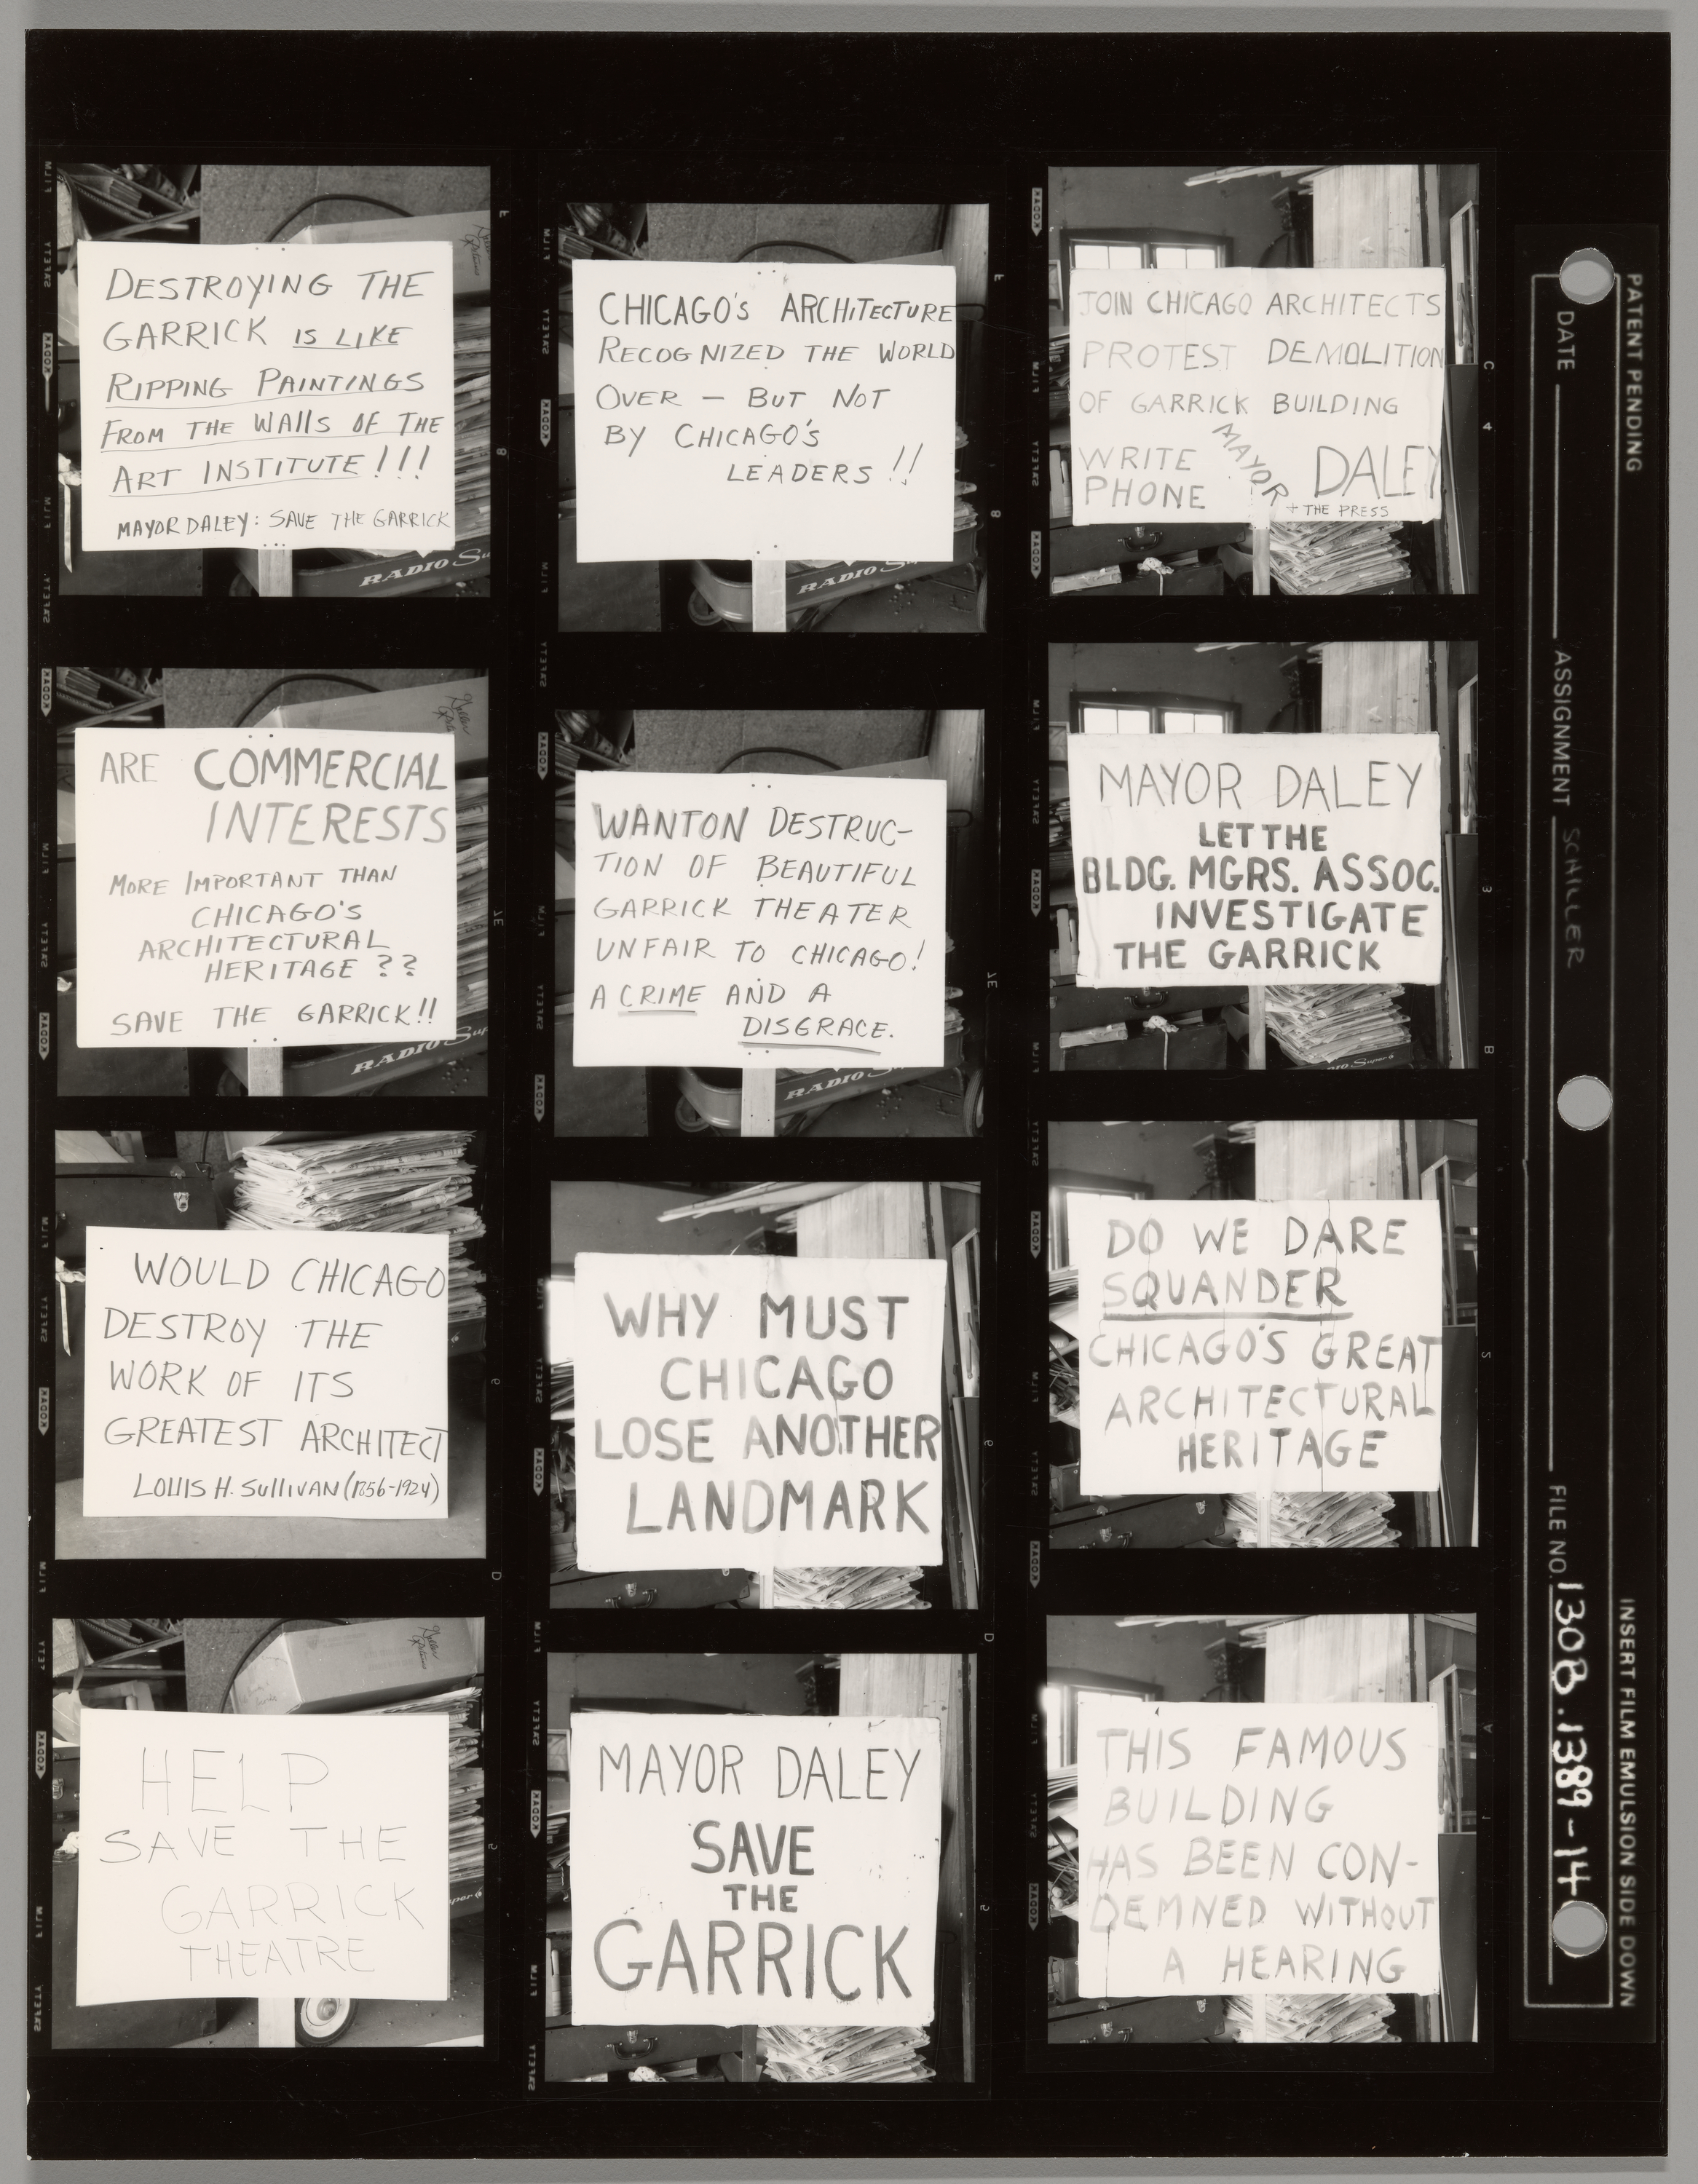 DESTROYING THE
GARRICK IS LIKE
RIPPING PAINTINGS
FROM THE WALLS OF THE
ART INSTITUTE!!!
MAYOR DALEY: SAVE THE GARRICK
RADIO Su
ARE COMMERCIAL
INTERESTS
MORE IMPORTANT THAN
CHICAGO'S
ARCHITECTURAL
HERITAGE ??
SAVE THE GARRICK!!
RADIO Sup
WOULD CHICAGO
DESTROY THE
WORK OF ITS
GREATEST ARCHITECT
LOUIS H. SULLIVAN (1856-1924)
HELP
SAVE THE
GARRICK
THEATRE
CHICAGO'S ARCHITECTURE
RECOGNIZED THE WORLD
OVER — BUT NOT
BY CHICAGO'S
LEADERS!!
RADIO Su
WANTON DESTRUC-
TION OF BEAUTIFUL
GARRICK THEATER
UNFAIR TO CHICAGO!
A CRIME AND A
DISGRACE.
RADIO S
WHY MUST
CHICAGO
LOSE ANOTHER
LANDMARK
MAYOR DALEY
SAVE
THE
GARRICK
JOIN CHICAGO ARCHITECTS
PROTEST DEMOLITION
OF GARRICK BUILDING
WRITE
PHONE
MAYOR
DALEY
+ THE PRESS
MAYOR DALEY
LET THE
BLDG. MGRS. ASSOC.
INVESTIGATE
THE GARRICK
DIO Super 6
DO WE DARE
SQUANDER
CHICAGO'S GREAT
ARCHITECTURAL
HERITAGE
THIS FAMOUS
BUILDING
HAS BEEN CON-
DEMNED WITHOUT
A HEARING
PATENT PENDING
INSERT FILM EMULSION SIDE DOWN
DATE
ASSIGNMENT SCHILLER
FILE NO. 1308.1389-14